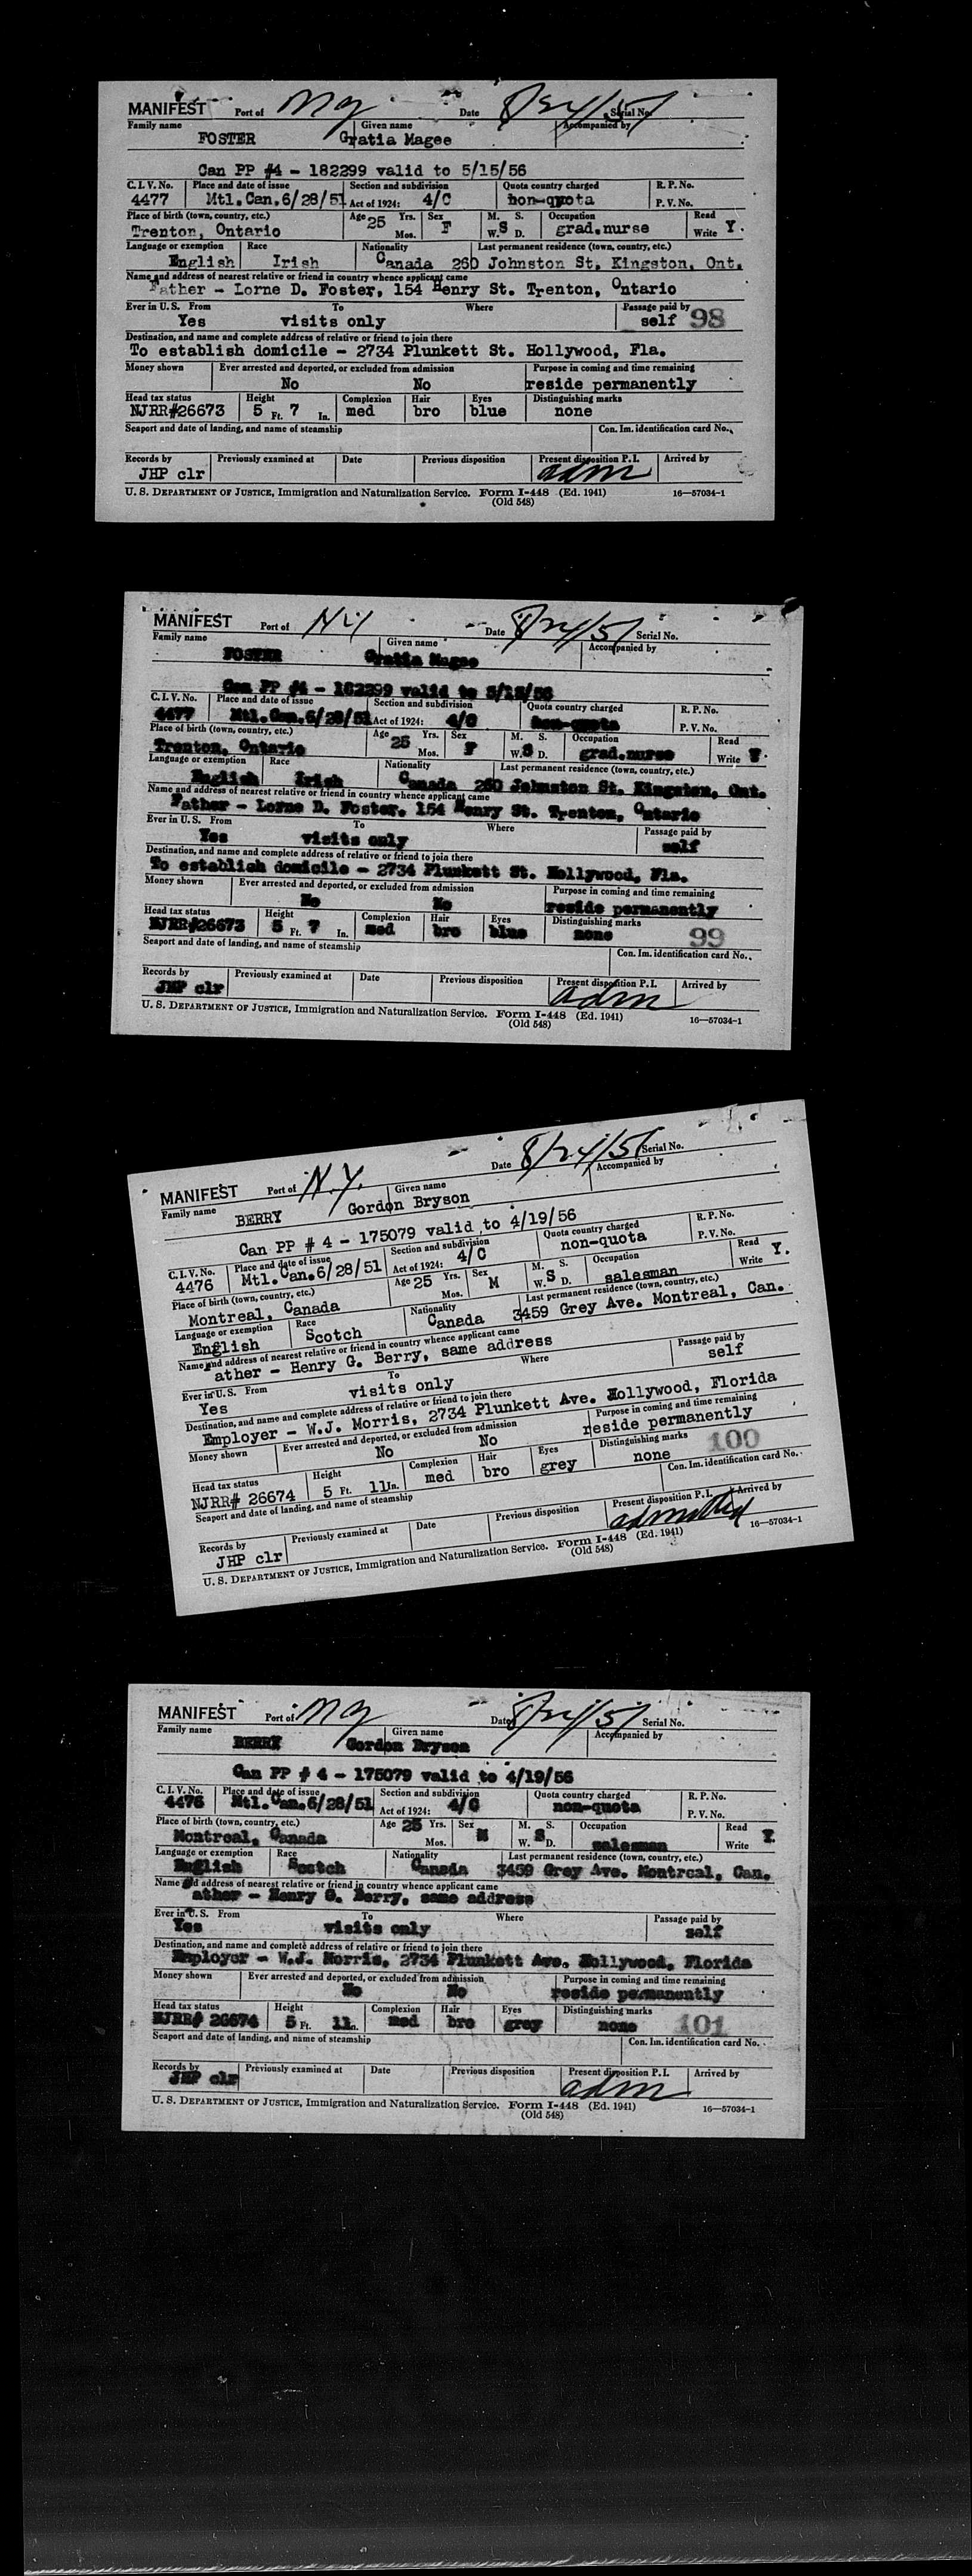 MANIFEST Port of NY Date 8/24/51 Serial No.
Family name Given name Accompanied by
FOSTER Gratia Magee
Can PP #4 - 182299 valid to 5/15/56
C. I. V. No. Place and date of issue Section and subdivision Quota country charged R. P. No.
4477 Mtl.Can.6/28/51 Act of 1924: 4/C non-quota P. V. No.
Place of birth (town, country, etc.) Age 25 Yrs. Sex M. S. Occupation Read
Trenton, Ontario Mos. F W. S D. grad.nurse Write Y.
Language or exemption Race Nationality Last permanent residence (town, country, etc.)
English Irish Canada 260 Johnston St, Kingston, Ont.
Name and address of nearest relative or friend in country whence applicant came
Father - Lorne D. Foster, 154 Henry St. Trenton, Ontario
Ever in U. S. From To Where Passage paid by
Yes visits only self 98
Destination, and name and complete address of relative or friend to join there
To establish domicile - 2734 Plunkett St. Hollywood, Fla.
Money shown Ever arrested and deported, or excluded from admission Purpose in coming and time remaining
No No reside permanently
Head tax status Height Complexion Hair Eyes Distinguishing marks
NJRR#26673 5 Ft. 7 In. med bro blue none
Seaport and date of landing, and name of steamship Con. Im. identification card No.
Records by Previously examined at Date Previous disposition Present disposition P. I. Arrived by
JHP clr adm
U. S. DEPARTMENT OF JUSTICE, Immigration and Naturalization Service. Form I-448 (Ed. 1941) 16—57034-1
(Old 548)
MANIFEST Port of NY Date 8/24/51 Serial No.
Family name Given name Accompanied by
FOSTER Gratia Magee
Can PP #4 - 182299 valid to 5/15/56
C. I. V. No. Place and date of issue Section and subdivision Quota country charged R. P. No.
4477 Mtl.Can.6/28/51 Act of 1924: 4/C non-quota P. V. No.
Place of birth (town, country, etc.) Age 25 Yrs. Sex M. S. Occupation Read
Trenton, Ontario Mos. F W. S D. grad.nurse Write Y.
Language or exemption Race Nationality Last permanent residence (town, country, etc.)
English Irish Canada 260 Johnston St. Kingston, Ont.
Name and address of nearest relative or friend in country whence applicant came
Father - Lorne D. Foster, 154 Henry St. Trenton, Ontario
Ever in U. S. From To Where Passage paid by
Yes visits only self
Destination, and name and complete address of relative or friend to join there
To establish domicile - 2734 Plunkett St. Hollywood, Fla.
Money shown Ever arrested and deported, or excluded from admission Purpose in coming and time remaining
No No reside permanently
Head tax status Height Complexion Hair Eyes Distinguishing marks
NJRR#26673 5 Ft. 7 In. med bro blue none 99
Seaport and date of landing, and name of steamship Con. Im. identification card No.
Records by Previously examined at Date Previous disposition Present disposition P. I. Arrived by
JHP clr adm
U. S. DEPARTMENT OF JUSTICE, Immigration and Naturalization Service. Form I-448 (Ed. 1941) 16—57034-1
(Old 548)
MANIFEST Port of N.Y. Date 8/24/51 Serial No.
Family name Given name Accompanied by
BERRY Gordon Bryson
Can PP # 4 - 175079 valid to 4/19/56
C. I. V. No. Place and date of issue Section and subdivision Quota country charged R. P. No.
4476 Mtl.Can.6/28/51 Act of 1924: 4/C non-quota P. V. No.
Place of birth (town, country, etc.) Age 25 Yrs. Sex M. S. Occupation Read
Montreal, Canada Mos. M W. S D. salesman Write Y.
Language or exemption Race Nationality Last permanent residence (town, country, etc.)
English Scotch Canada 3459 Grey Ave. Montreal, Can.
Name and address of nearest relative or friend in country whence applicant came
ather - Henry G. Berry, same address
Ever in U. S. From To Where Passage paid by
Yes visits only self
Destination, and name and complete address of relative or friend to join there
Employer - W.J. Morris, 2734 Plunkett Ave. Hollywood, Florida
Money shown Ever arrested and deported, or excluded from admission Purpose in coming and time remaining
No No reside permanently
Head tax status Height Complexion Hair Eyes Distinguishing marks
NJRR# 26674 5 Ft. 11 In. med bro grey none 100
Seaport and date of landing, and name of steamship Con. Im. identification card No.
Records by Previously examined at Date Previous disposition Present disposition P. I. Arrived by
JHP clr admitted
U. S. DEPARTMENT OF JUSTICE, Immigration and Naturalization Service. Form I-448 (Ed. 1941) 16—57034-1
(Old 548)
MANIFEST Port of NY Date 8/24/51 Serial No.
Family name Given name Accompanied by
BERRY Gordon Bryson
Can PP # 4 - 175079 valid to 4/19/56
C. I. V. No. Place and date of issue Section and subdivision Quota country charged R. P. No.
4476 Mtl.Can.6/28/51 Act of 1924: 4/C non-quota P. V. No.
Place of birth (town, country, etc.) Age 25 Yrs. Sex M. S. Occupation Read
Montreal, Canada Mos. M W. S D. salesman Write Y.
Language or exemption Race Nationality Last permanent residence (town, country, etc.)
English Scotch Canada 3459 Grey Ave. Montreal, Can.
Name and address of nearest relative or friend in country whence applicant came
ather - Henry G. Berry, same address
Ever in U. S. From To Where Passage paid by
Yes visits only self
Destination, and name and complete address of relative or friend to join there
Employer - W.J. Morris, 2734 Plunkett Ave. Hollywood, Florida
Money shown Ever arrested and deported, or excluded from admission Purpose in coming and time remaining
No No reside permanently
Head tax status Height Complexion Hair Eyes Distinguishing marks
NJRR# 26674 5 Ft. 11 In. med bro grey none 101
Seaport and date of landing, and name of steamship Con. Im. identification card No.
Records by Previously examined at Date Previous disposition Present disposition P. I. Arrived by
JHP clr adm
U. S. DEPARTMENT OF JUSTICE, Immigration and Naturalization Service. Form I-448 (Ed. 1941) 16—57034-1
(Old 548)